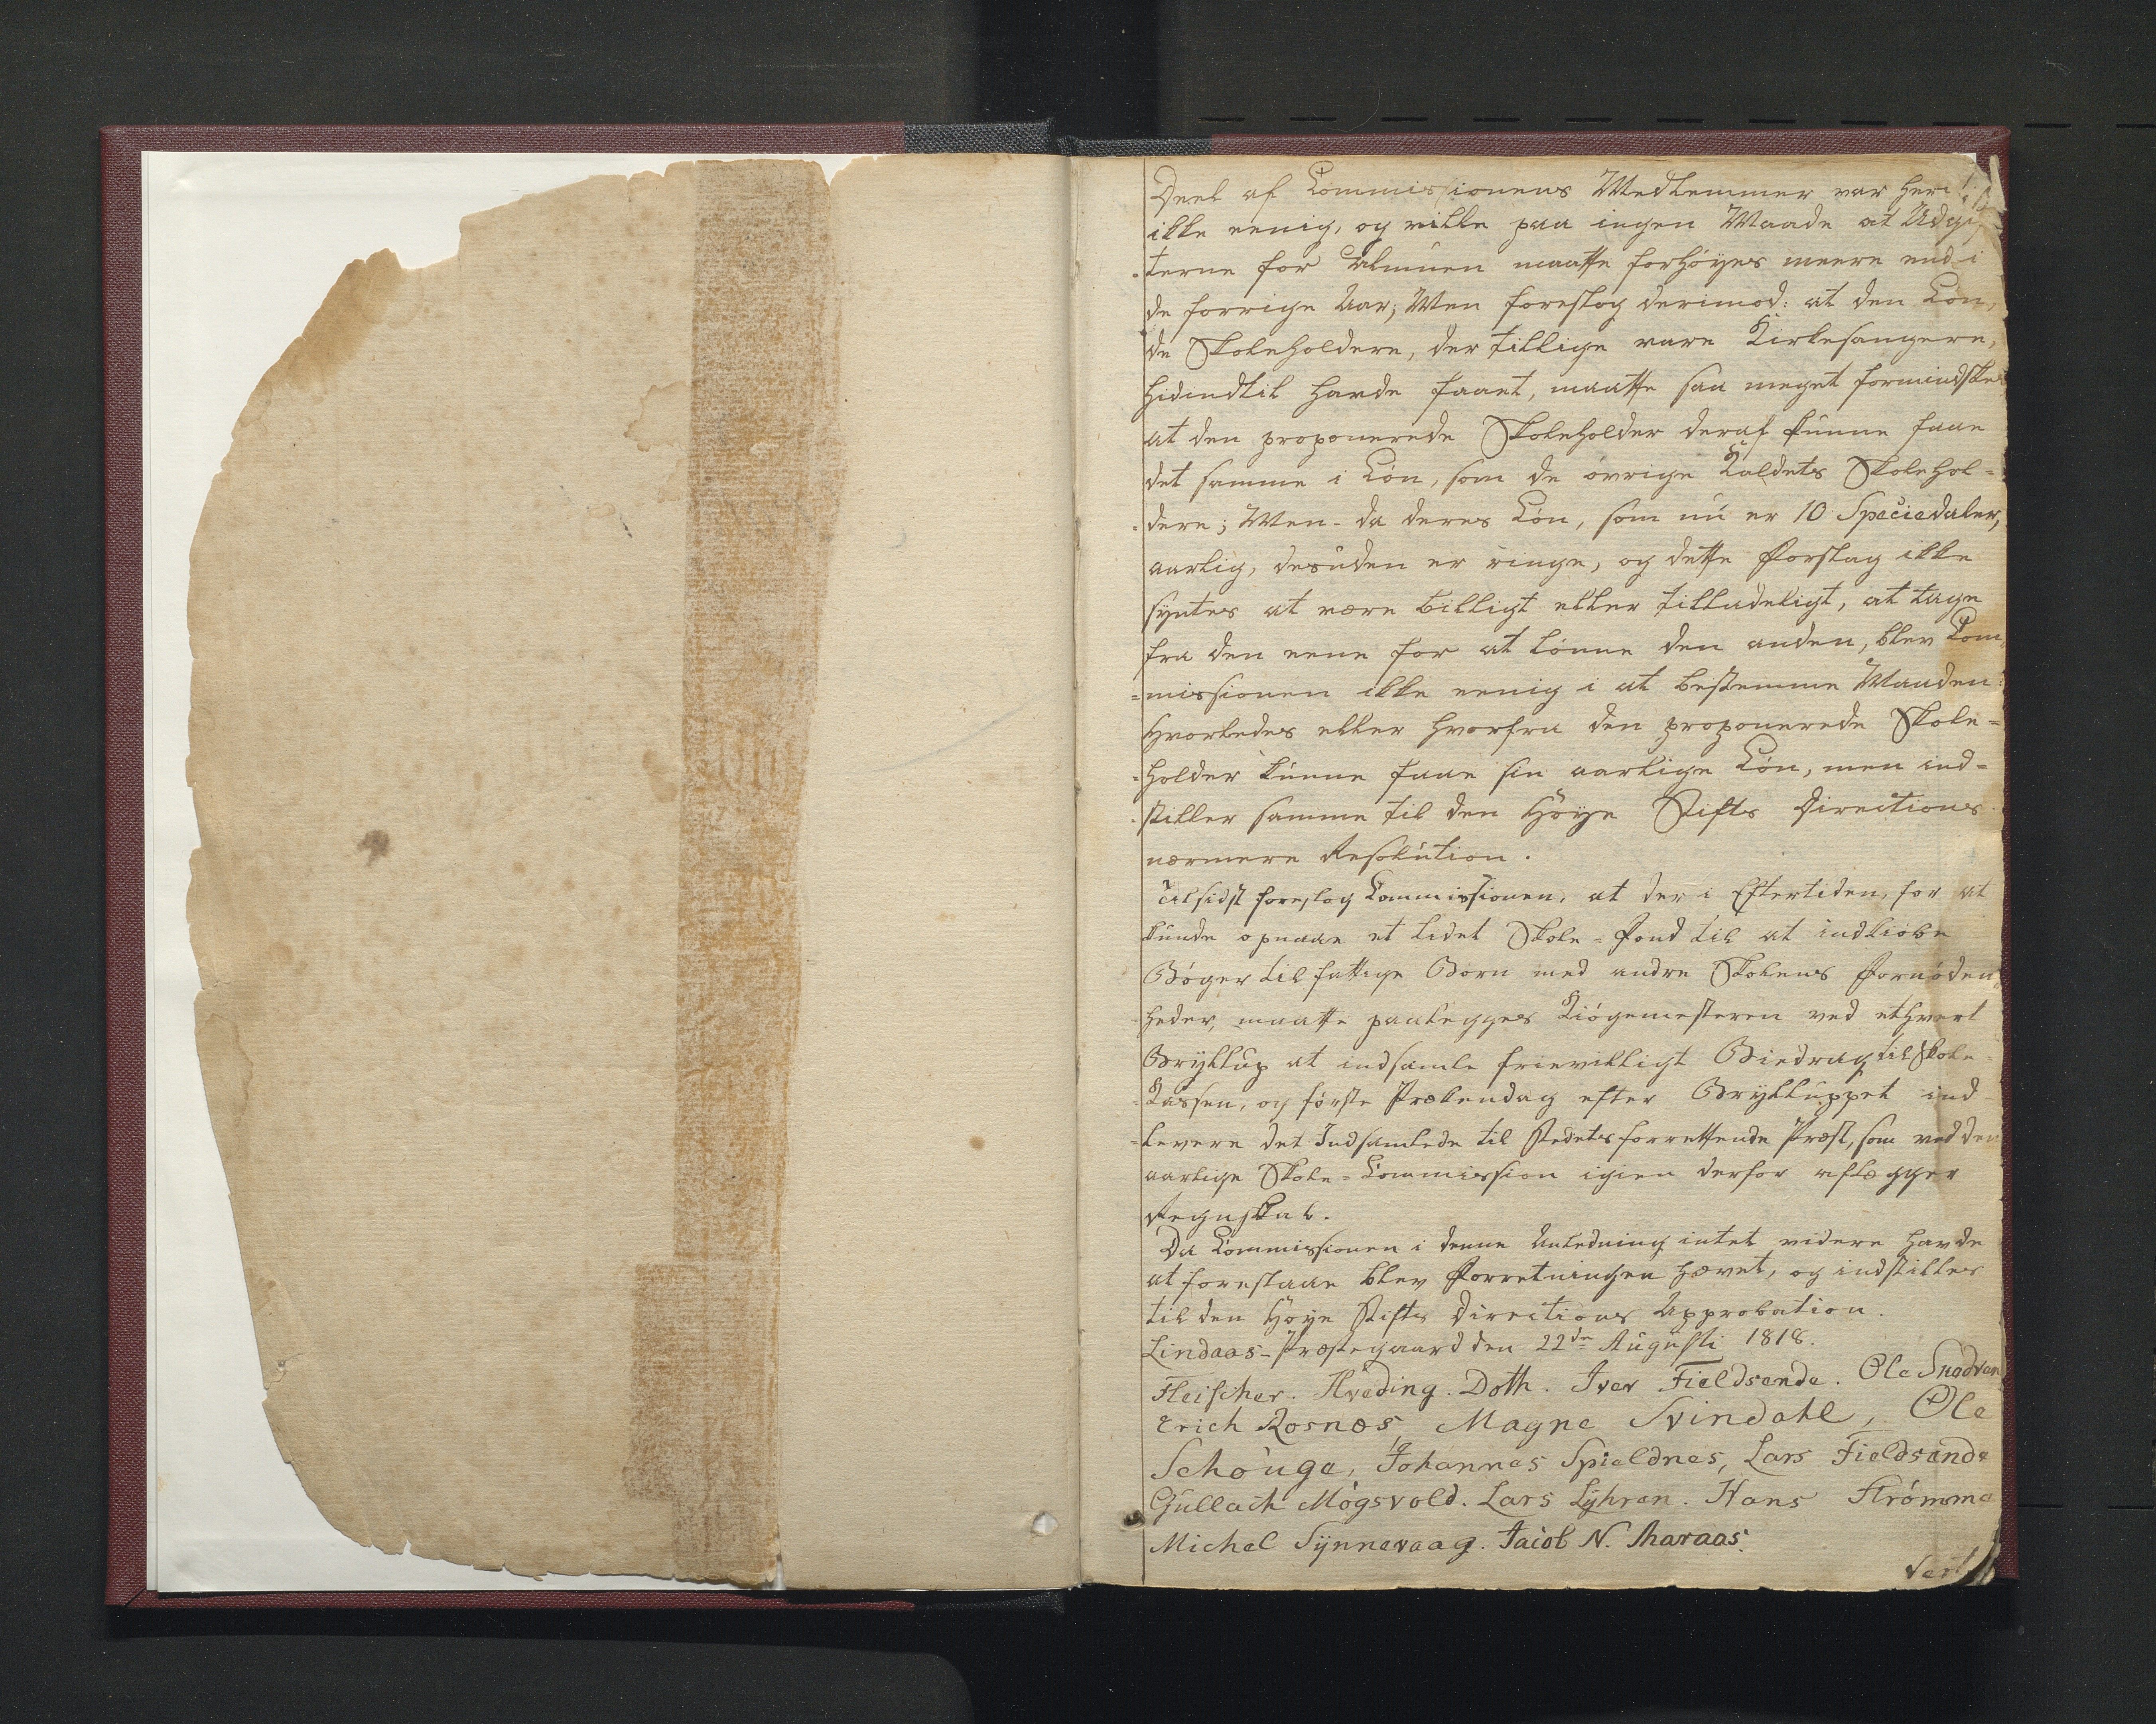 Deel af Commissionens Medlemmer var heri
ikke eenig, og vilde paa ingen Maade at Udgif
-terne for Almuen maatte forhøyes meere end i
de forrige Aar; Men foreslog derimod: at den Løn,
de Skoleholdere, der tillige vare Kirkesangere,
hidindtil havde faaet, maatte saa meget formindskes
at den proponerede Skoleholder deraf kunne faae
det samme i Løn, som de øvrige Kaldets Skolehol=
=dere; Men da deres Løn, som nu er 10 Speciedaler,
aarlig, desuden er ringe, og dette Forslag ikke
syntes at være billigt eller tilladeligt, at tage
fra den eene for at lønne den anden, blev Com
=missionen ikke eenig i at bestemme Maaden:
hvorledes eller hvorfra den proponerede Skole=
=holder kunne faae sin aarlige Løn, men ind=
-stiller samme til den Høye Stifts Directions
nærmere Resolution.
Til sidst foreslog Commissionen, at der i Eftertiden, for at
kunde opnaae et lidet Skole=Fond til at indkiøbe
Bøger til fattige Børn med andre Skolens Fornøden
heder, maatte paalegges Kiøgemesteren ved ethvert
Bryllup at indsamle frievilligt Biedrag til Skole=
=Kassen, og første Prækendag efter Brylluppet ind
=levere det Indsamlede til Stedets forrettende Præst, som ved den
aarlige Skole=Commission igien derfor aflægger
Regnskab.
Da Commissionen i denne Anledning intet videre havde
at forestaae blev Forretningen hævet, og indstilles
til den Høye Stifts Directions Approbation.
Lindaas-Præstegaard den 22de Augusti 1818.
Fleischer. Hveding. Doth. Iver Fieldsende. Ole
Erich Rosnes, Magne Svindahl, Ole
Schouge, Johannes Spieldnes, Lars Fieldsende
Gullach Mógsvold. Lars Lyhren. Hans Strømme
Michel Synnevaag. Jacob N. Maraas.